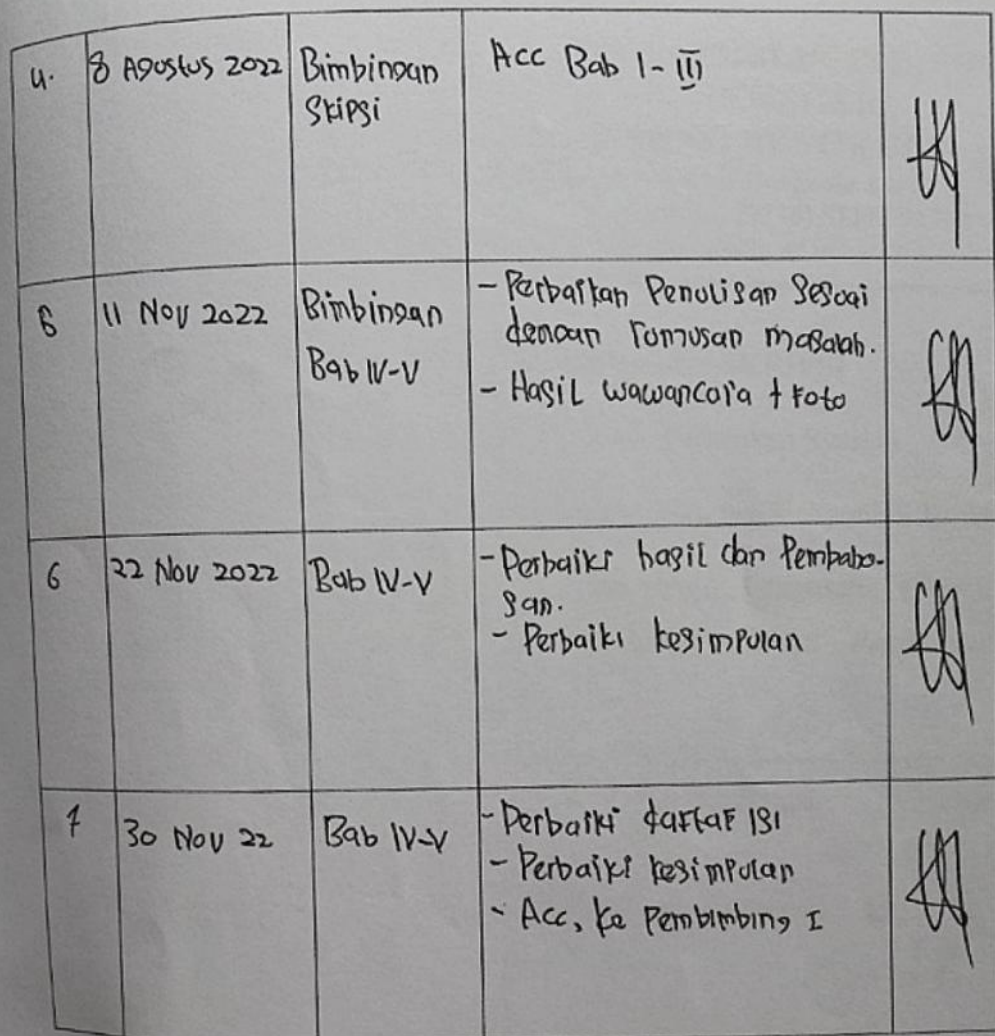 4. 8 Agustus 2022 Bimbingan Acc Bab I-III
Skripsi
5 11 Nov 2022 Bimbingan - Perbaikan Penulisan Sesuai
dengan rumusan masalah.
Bab IV-V
- Hasil wawancara + Foto
6 22 Nov 2022 Bab IV-V - Perbaiki hasil dan Pembaha-
san.
- Perbaiki kesimpulan
7 30 Nov 22 Bab IV-V - Perbaiki daftar isi
- Perbaiki kesimpulan
- Acc, ke Pembimbing I